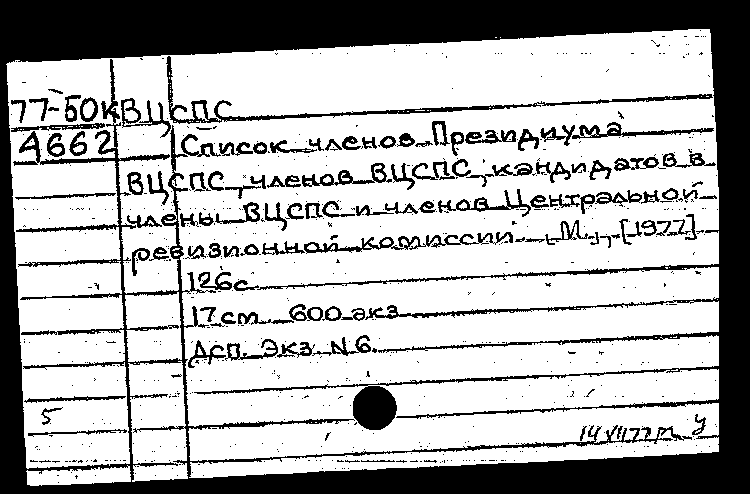 77-50к ВЦСПС
4662 Список членов Президиума
ВЦСПС, членов ВЦСПС, кандидатов в
члены ВЦСПС и членов Центральной
ревизионной комиссии. [М.], [1977]
126с
17см. 600 экз
Дсп. Экз N 6.
5